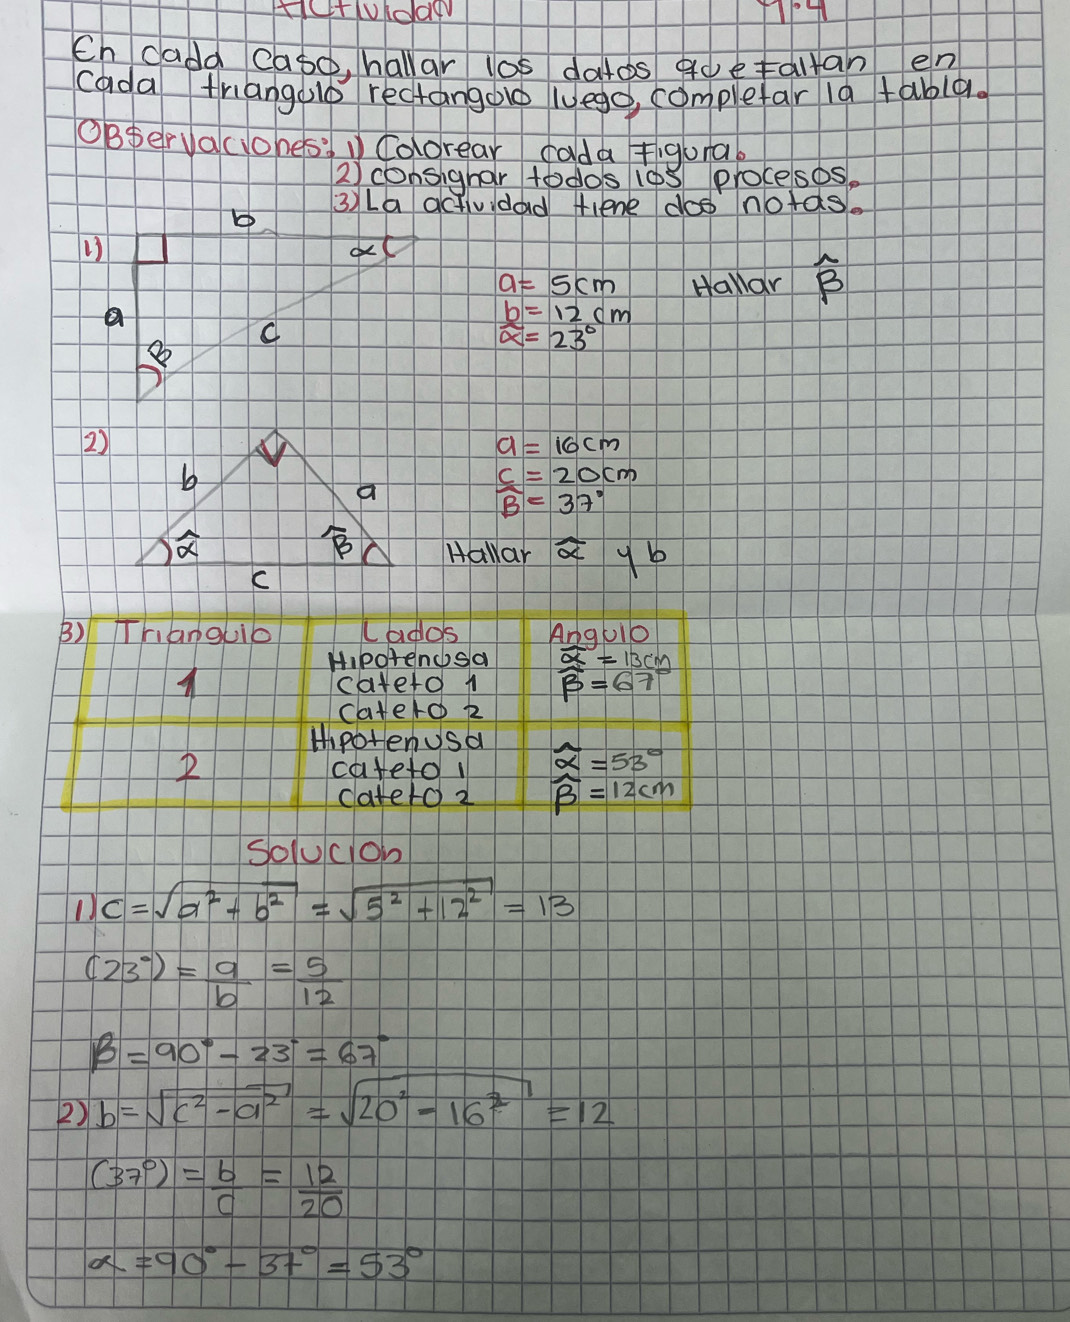 Actividad 9.4
En cada caso, hallar los datos que faltan en
cada triangulo rectangulo luego, completar la tabla.
Observaciones: 1) Colorear cada figura.
2) consignar todos los procesos.
3) La actividad tiene dos notas.
1)
b
α
a
c
β
a = 5cm Hallar β̂
b = 12 cm
α̂ = 23°
2)
b
a
α̂
β̂
c
a = 16cm
c = 20cm
β̂ = 37°
Hallar α̂ y b
3) Triangulo Lados Angulo
1
Hipotenusa
cateto 1
cateto 2
α̂ = 13cm
β̂ = 67°
2
Hipotenusa
cateto 1
cateto 2
α̂ = 53°
β̂ = 12cm
Solucion
1) c = √a² + b² = √5² + 12² = 13
(23°) = a/b = 5/12
β = 90° - 23° = 67°
2) b = √c² - a² = √20² - 16² = 12
(37°) = b/c = 12/20
α = 90° - 37° = 53°